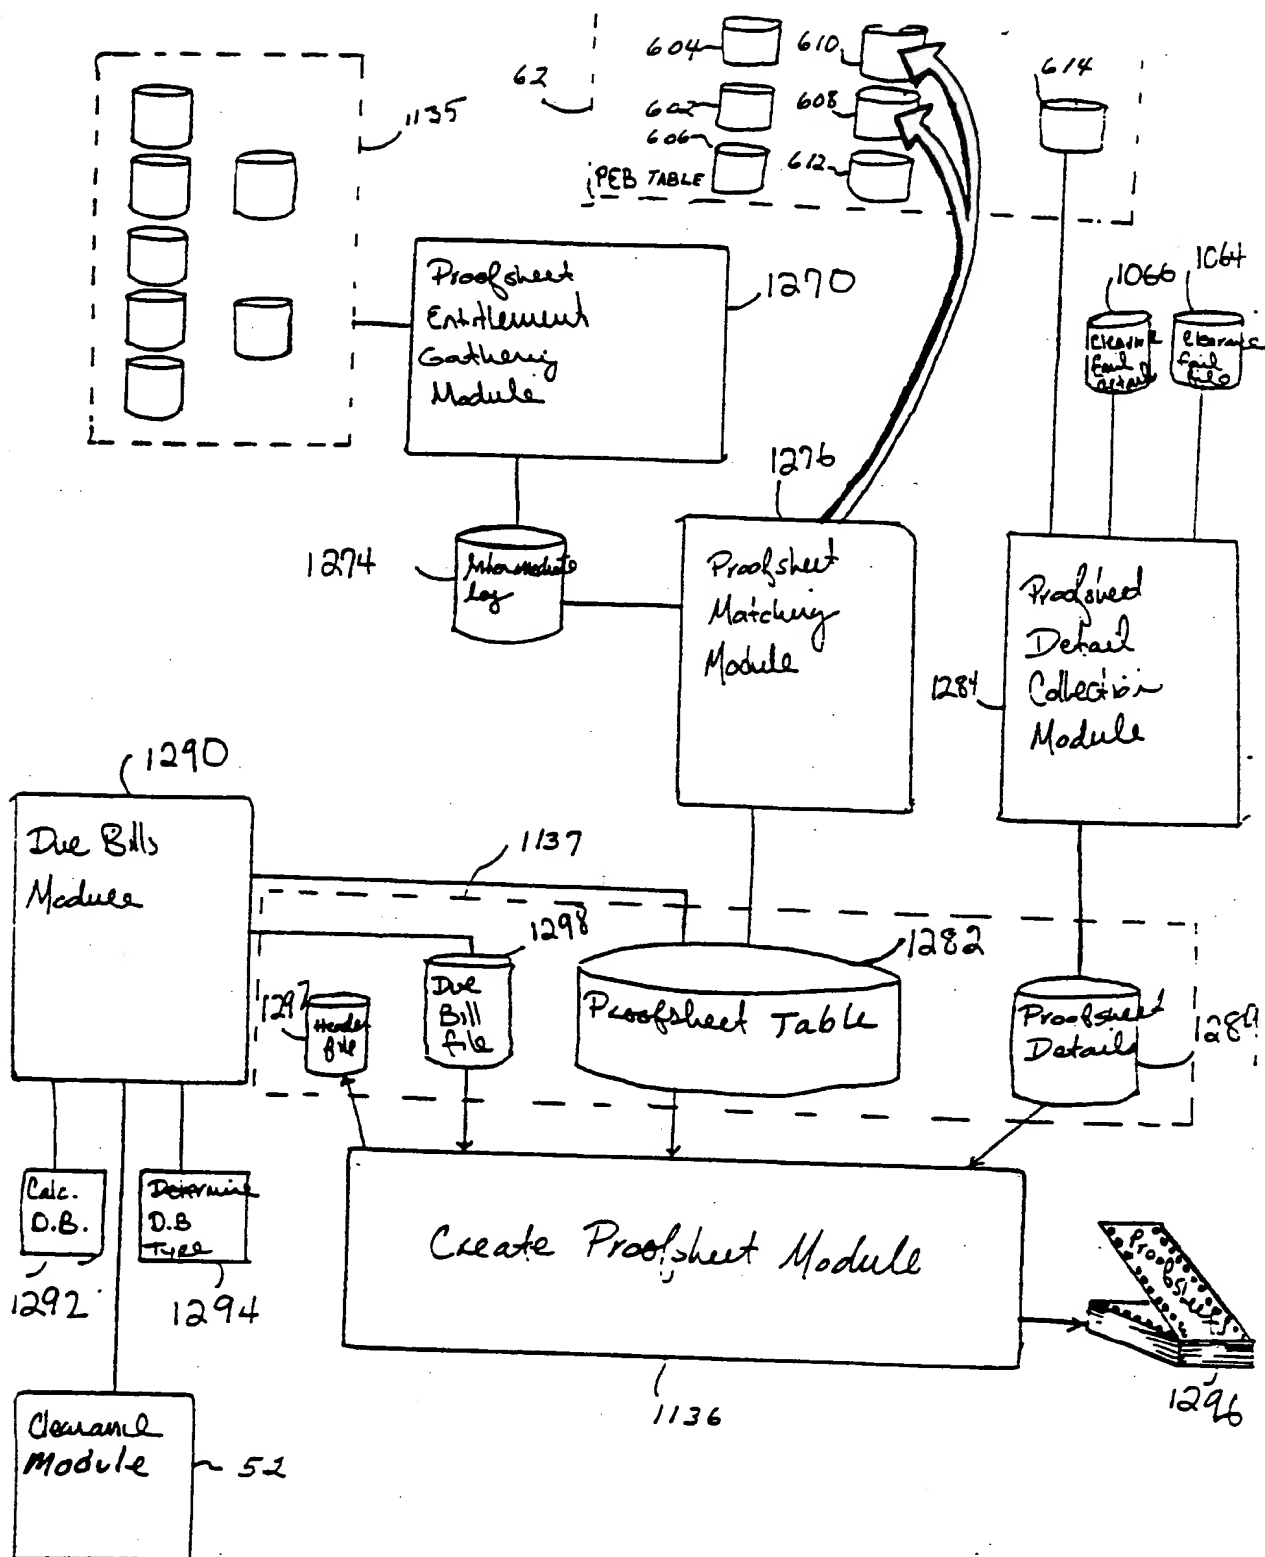 604
610
614
62
602
608
1135
606
612
PEB TABLE
1066
1064
Proofsheet
Entitlement
Gathering
Module
1270
Clearance
Fail
detail
Clearance
fail
file
1276
1274
Intermediate
log
Proofsheet
Matching
Module
Proofsheed
Detail
Collection
Module
1284
1290
Due Bills
Module
1137
1298
1282
1297
Header
file
Due
Bill
file
Proofsheet Table
Proofsheet
Details
Calc.
D.B.
Determine
D.B
Type
Create Proofsheet Module
Proofsheets
1292
1294
1136
1296
Clearance
Module
52